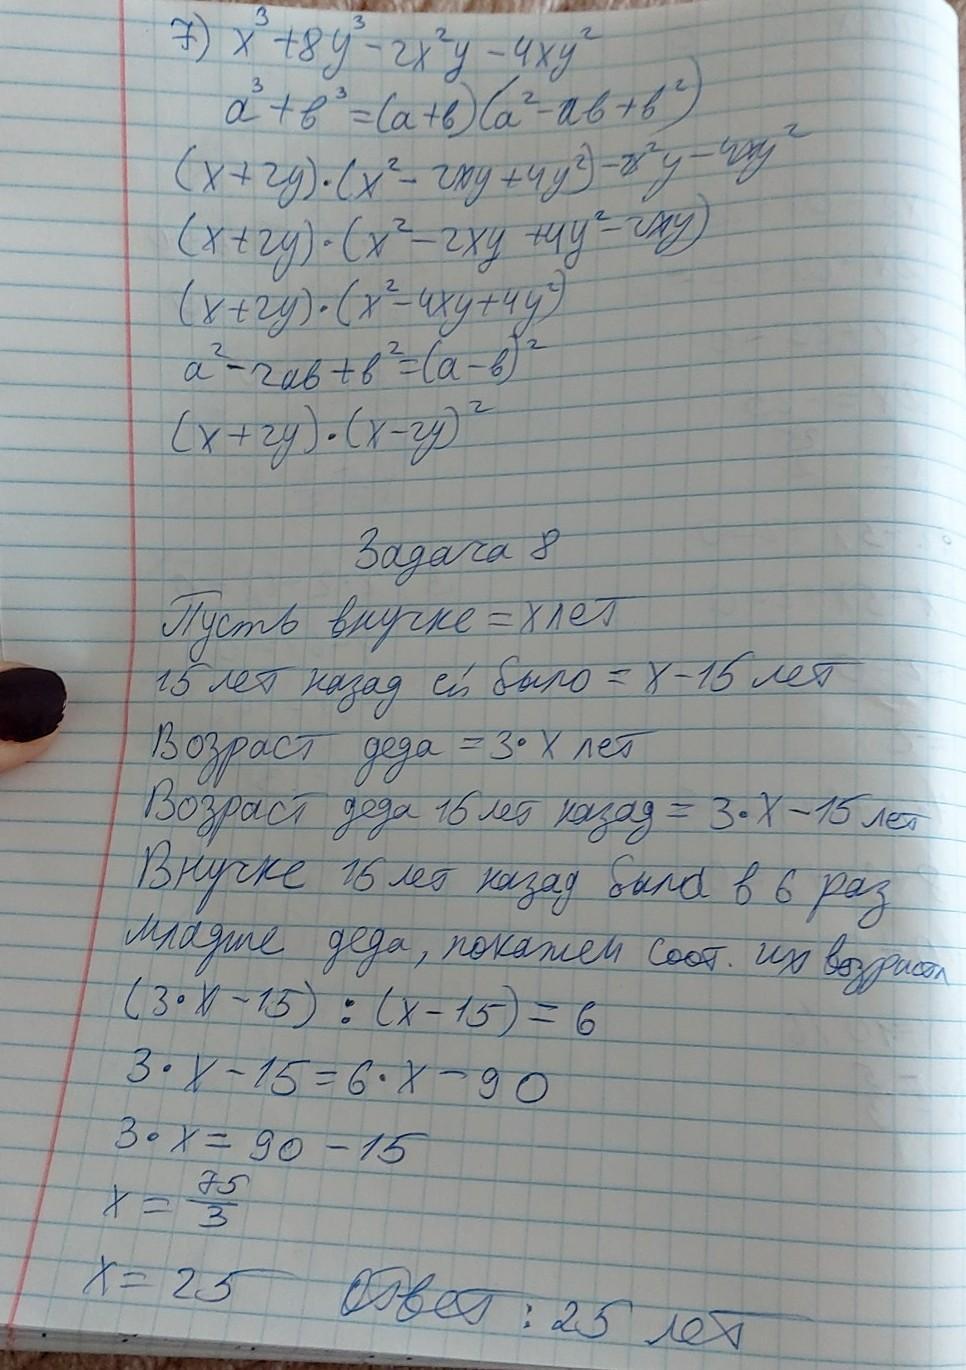 7) x³+8y³-2x²y-4xy²
a³+в³=(a+в)(a²-ав+в²)
(x+2y)·(x²-2xy+4y²)-2x²y-4xy²
(x+2y)·(x²-2xy+4y²-2xy)
(x+2y)·(x²-4xy+4y²)
a²-2ав+в²=(a-в)²
(x+2y)·(x-2y)²
Задача 8
Пусть внучке = x лет
15 лет назад ей было = x-15 лет
Возраст деда = 3·x лет
Возраст деда 15 лет назад = 3·x-15 лет
Внучке 15 лет назад была в 6 раз
младше деда, покажем соот. их возраста
(3·x-15):(x-15)=6
3·x-15=6·x-90
3·x=90-15
x=75/3
x=25 Ответ: 25 лет